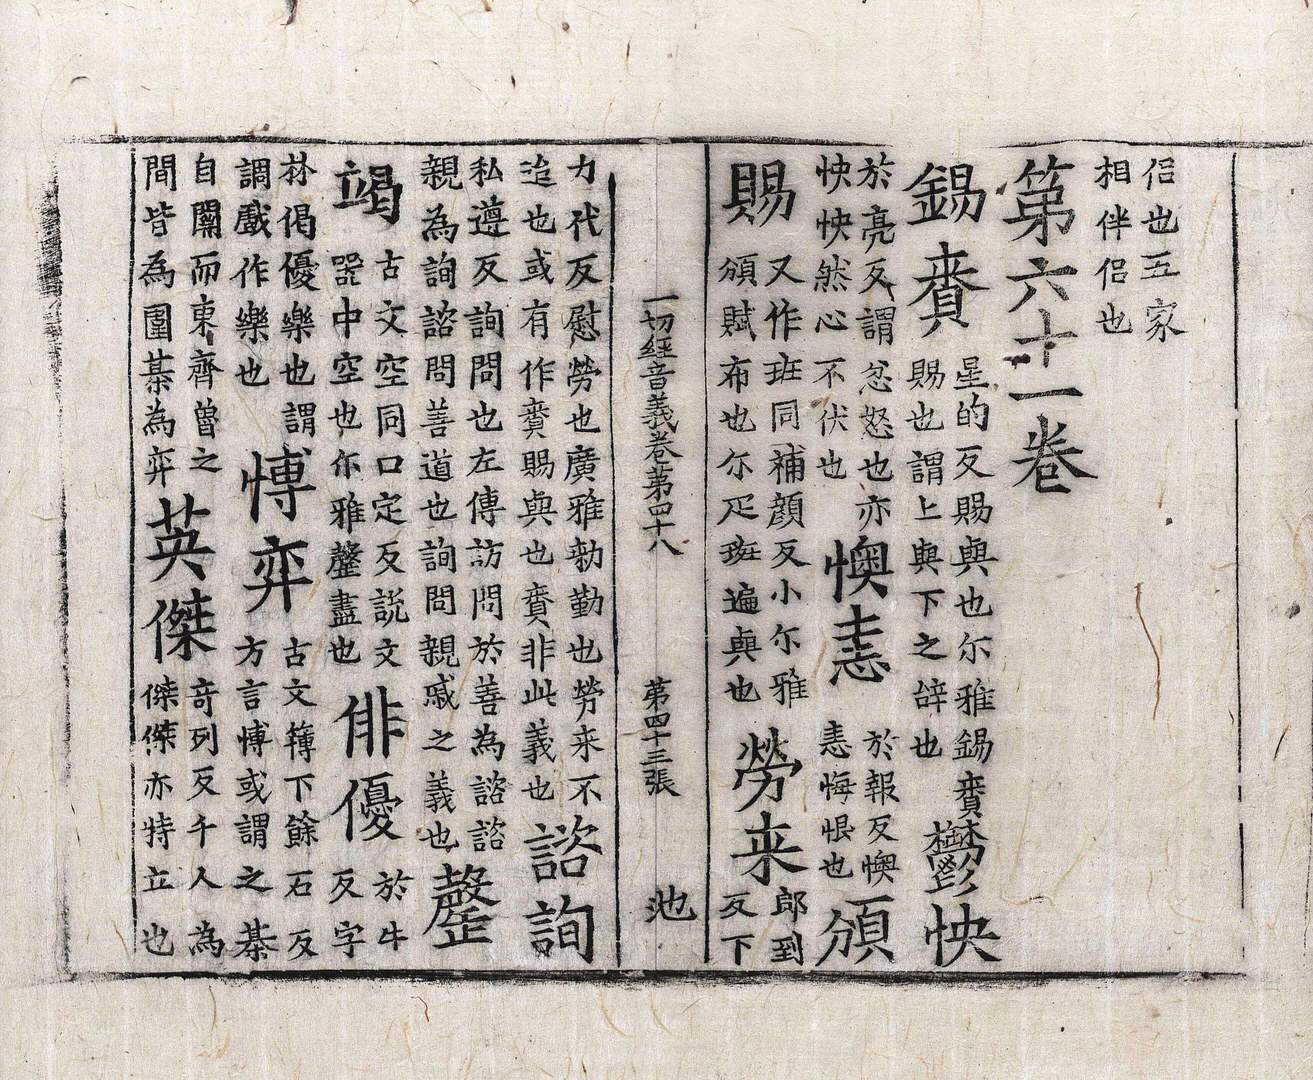 侶也五家
相伴侶也
第六十一卷
錫賚星的反賜與也尓雅錫賚賜也謂上與下之辝也鬱怏
於亮反謂忿怒也亦怏怏然心不伏也懊恚於報反懊恚悔恨也頒
賜又作班同補顏反小尓雅頒賦布也尓疋班遍與也勞来郎到反下
一切經音義卷第四十八 第四十三張 池
力代反慰勞也廣雅勑勤也勞来不迨也或有作賚賜與也賚非此義也諮詢
私遵反詢問也左傳訪問於善為諮諮親為詢諮問善道也詢問親戚之義也罄
竭古文空同口定反説文器中空也尓雅罄盡也俳優於牛反字
林偈優樂也謂調戱作樂也愽弈古文簙下餘石反方言愽或謂之棊
自關而東齊魯之間皆為圍棊為弈英傑奇列反千人為傑傑亦特立也